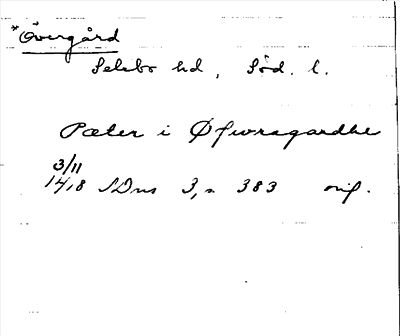 *Övergård
Selebo hd, Söd. l.
Pæter i Øfwragardhe
3/11
1418 SDns 3, s 383 orig.